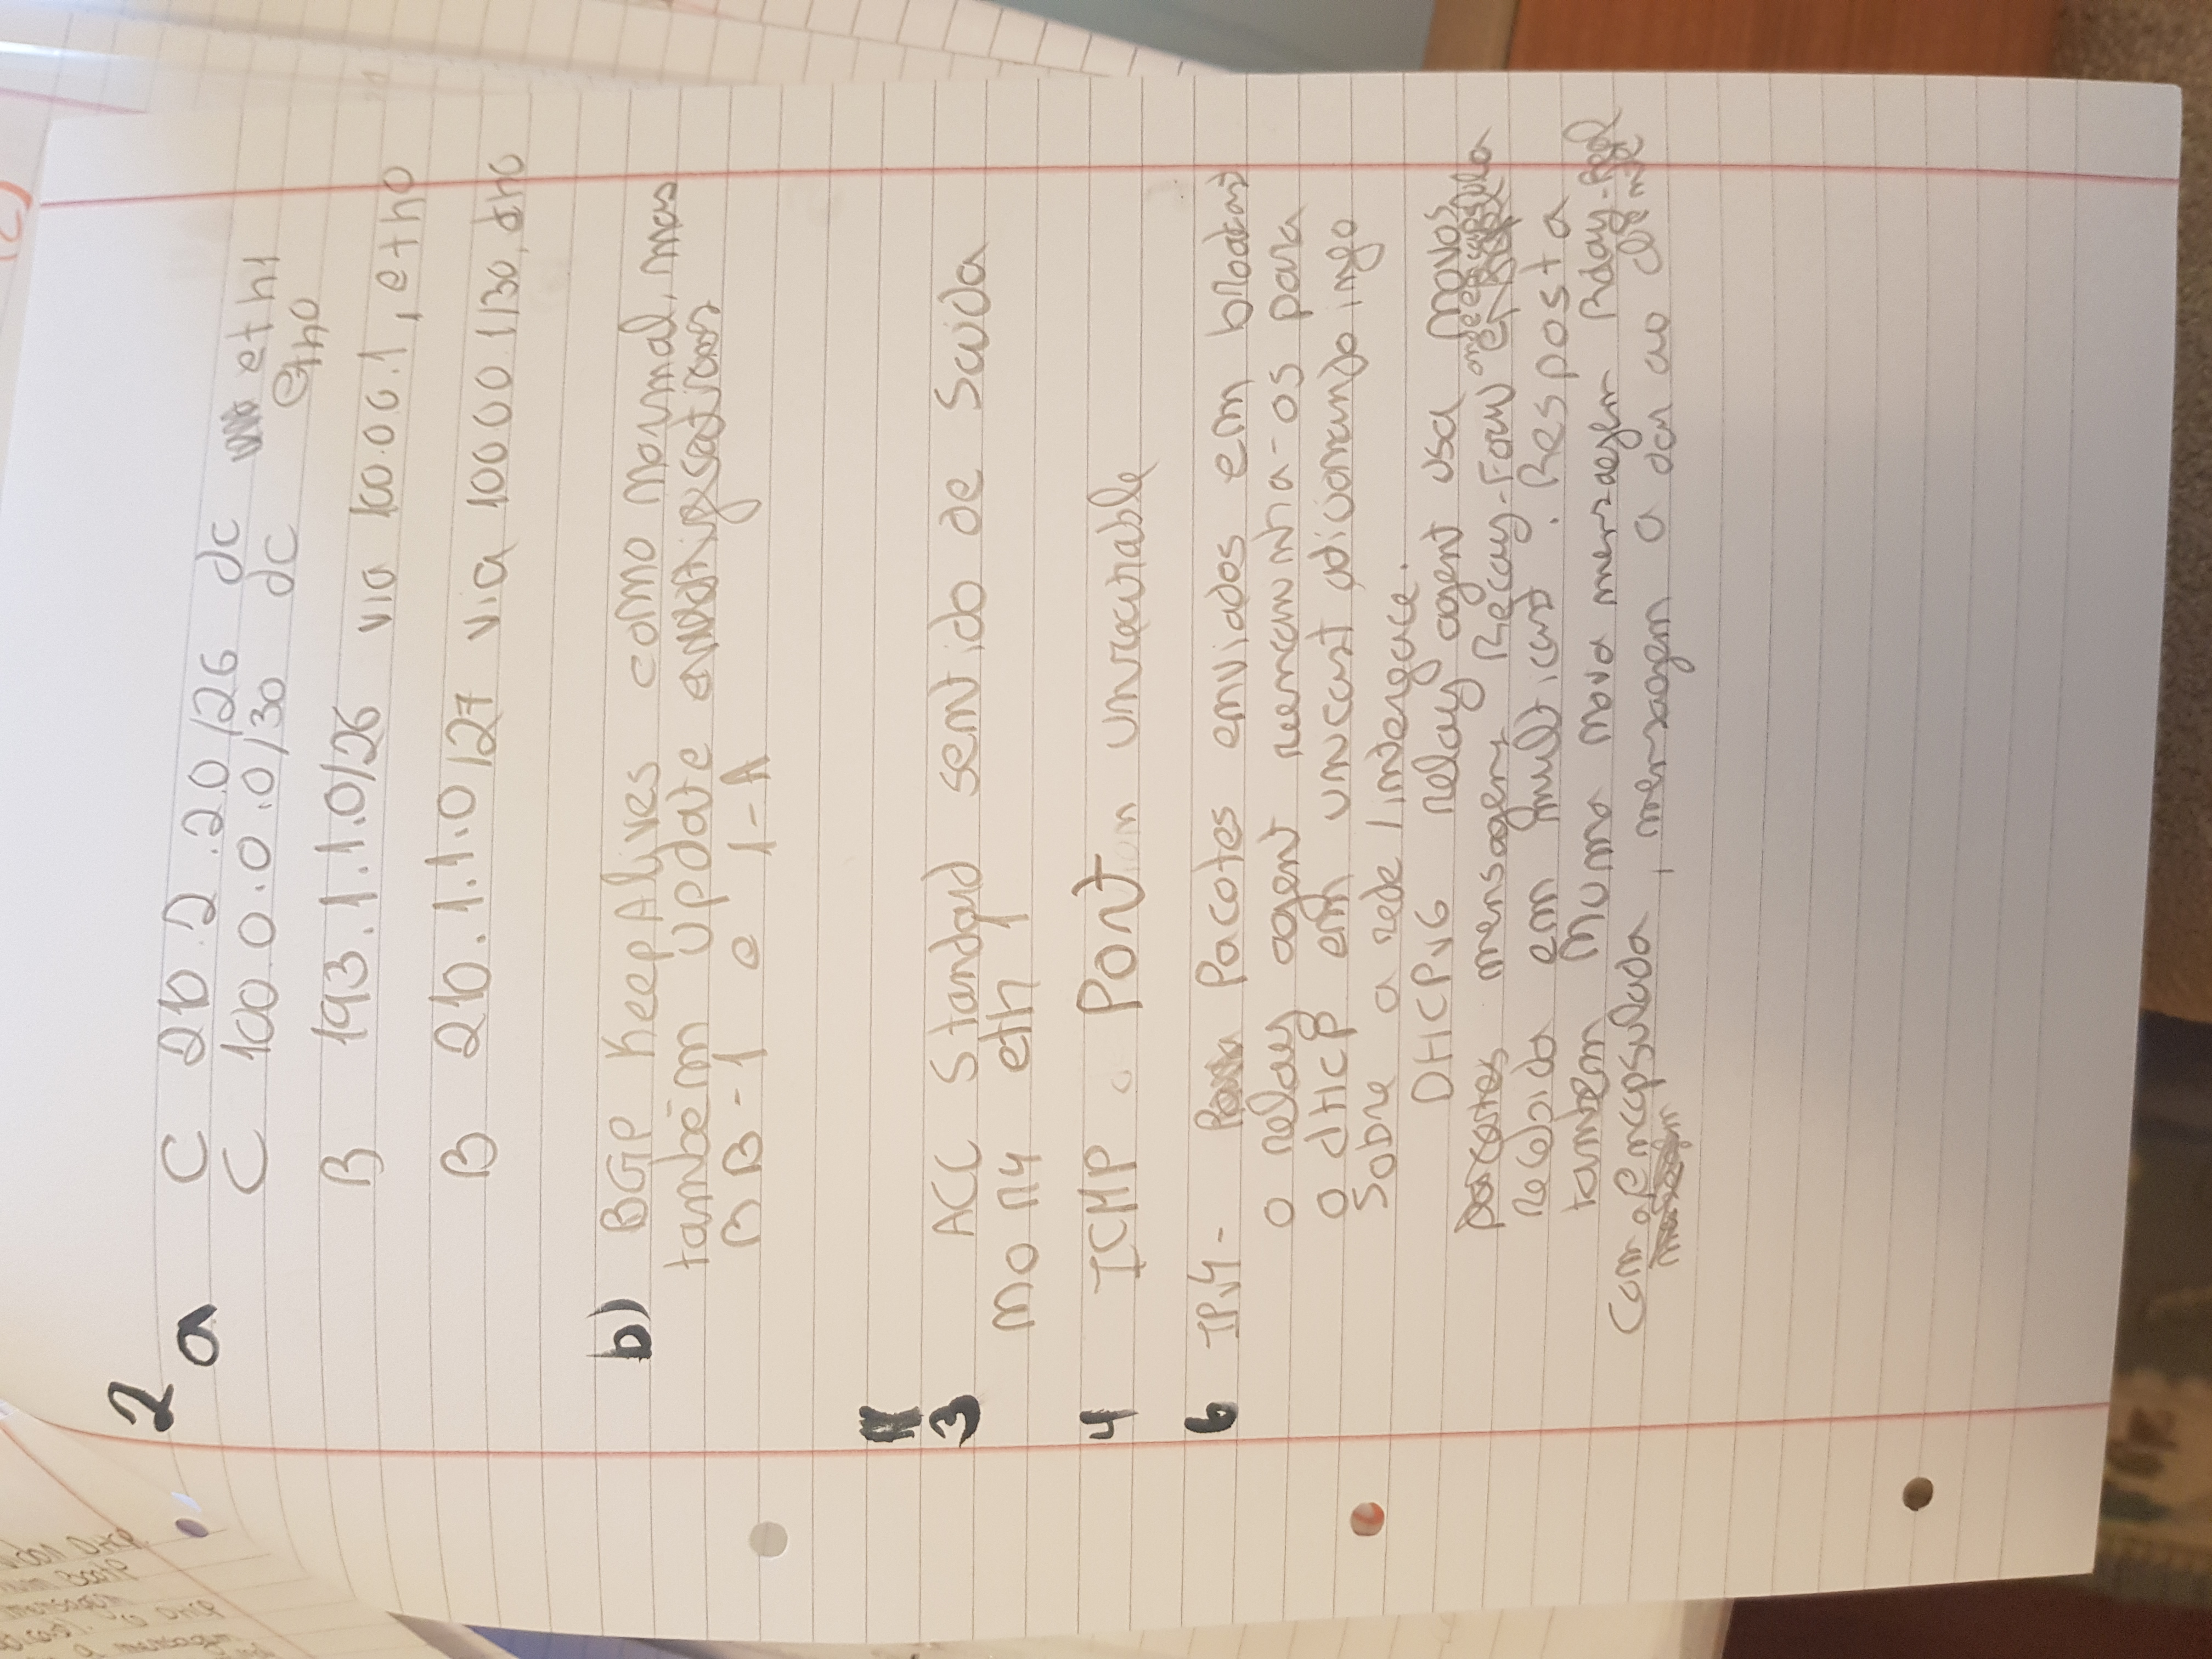 2
a C 210.2.2.0/26 dc eth1
C 100.0.0.0/30 dc eth0
B 193.1.1.0/26 via 100.00.1, eth0
B 210.1.1.0/27 via 10000.1/30, eth0
b) BGP KeepAlives como normal, mas
também Update
BB-1 e 1-A
3 ACL Standard sentido de Saida
no R4 eth 1
4 ICMP Port unreachable
6 IPv4- Pacotes enviados em broadcast
o relay agent reencaminha-os para
o dHCP em unicast adicionando info
Sobre a rede/interface.
DHCPv6 relay agent usa novos
mensagens Relay-Forw onde encapsula
recebida em multicast. Resposta
tambem numa nova mensagem Relay-Repl
com a encapsulada, mensagem a dar ao cliente